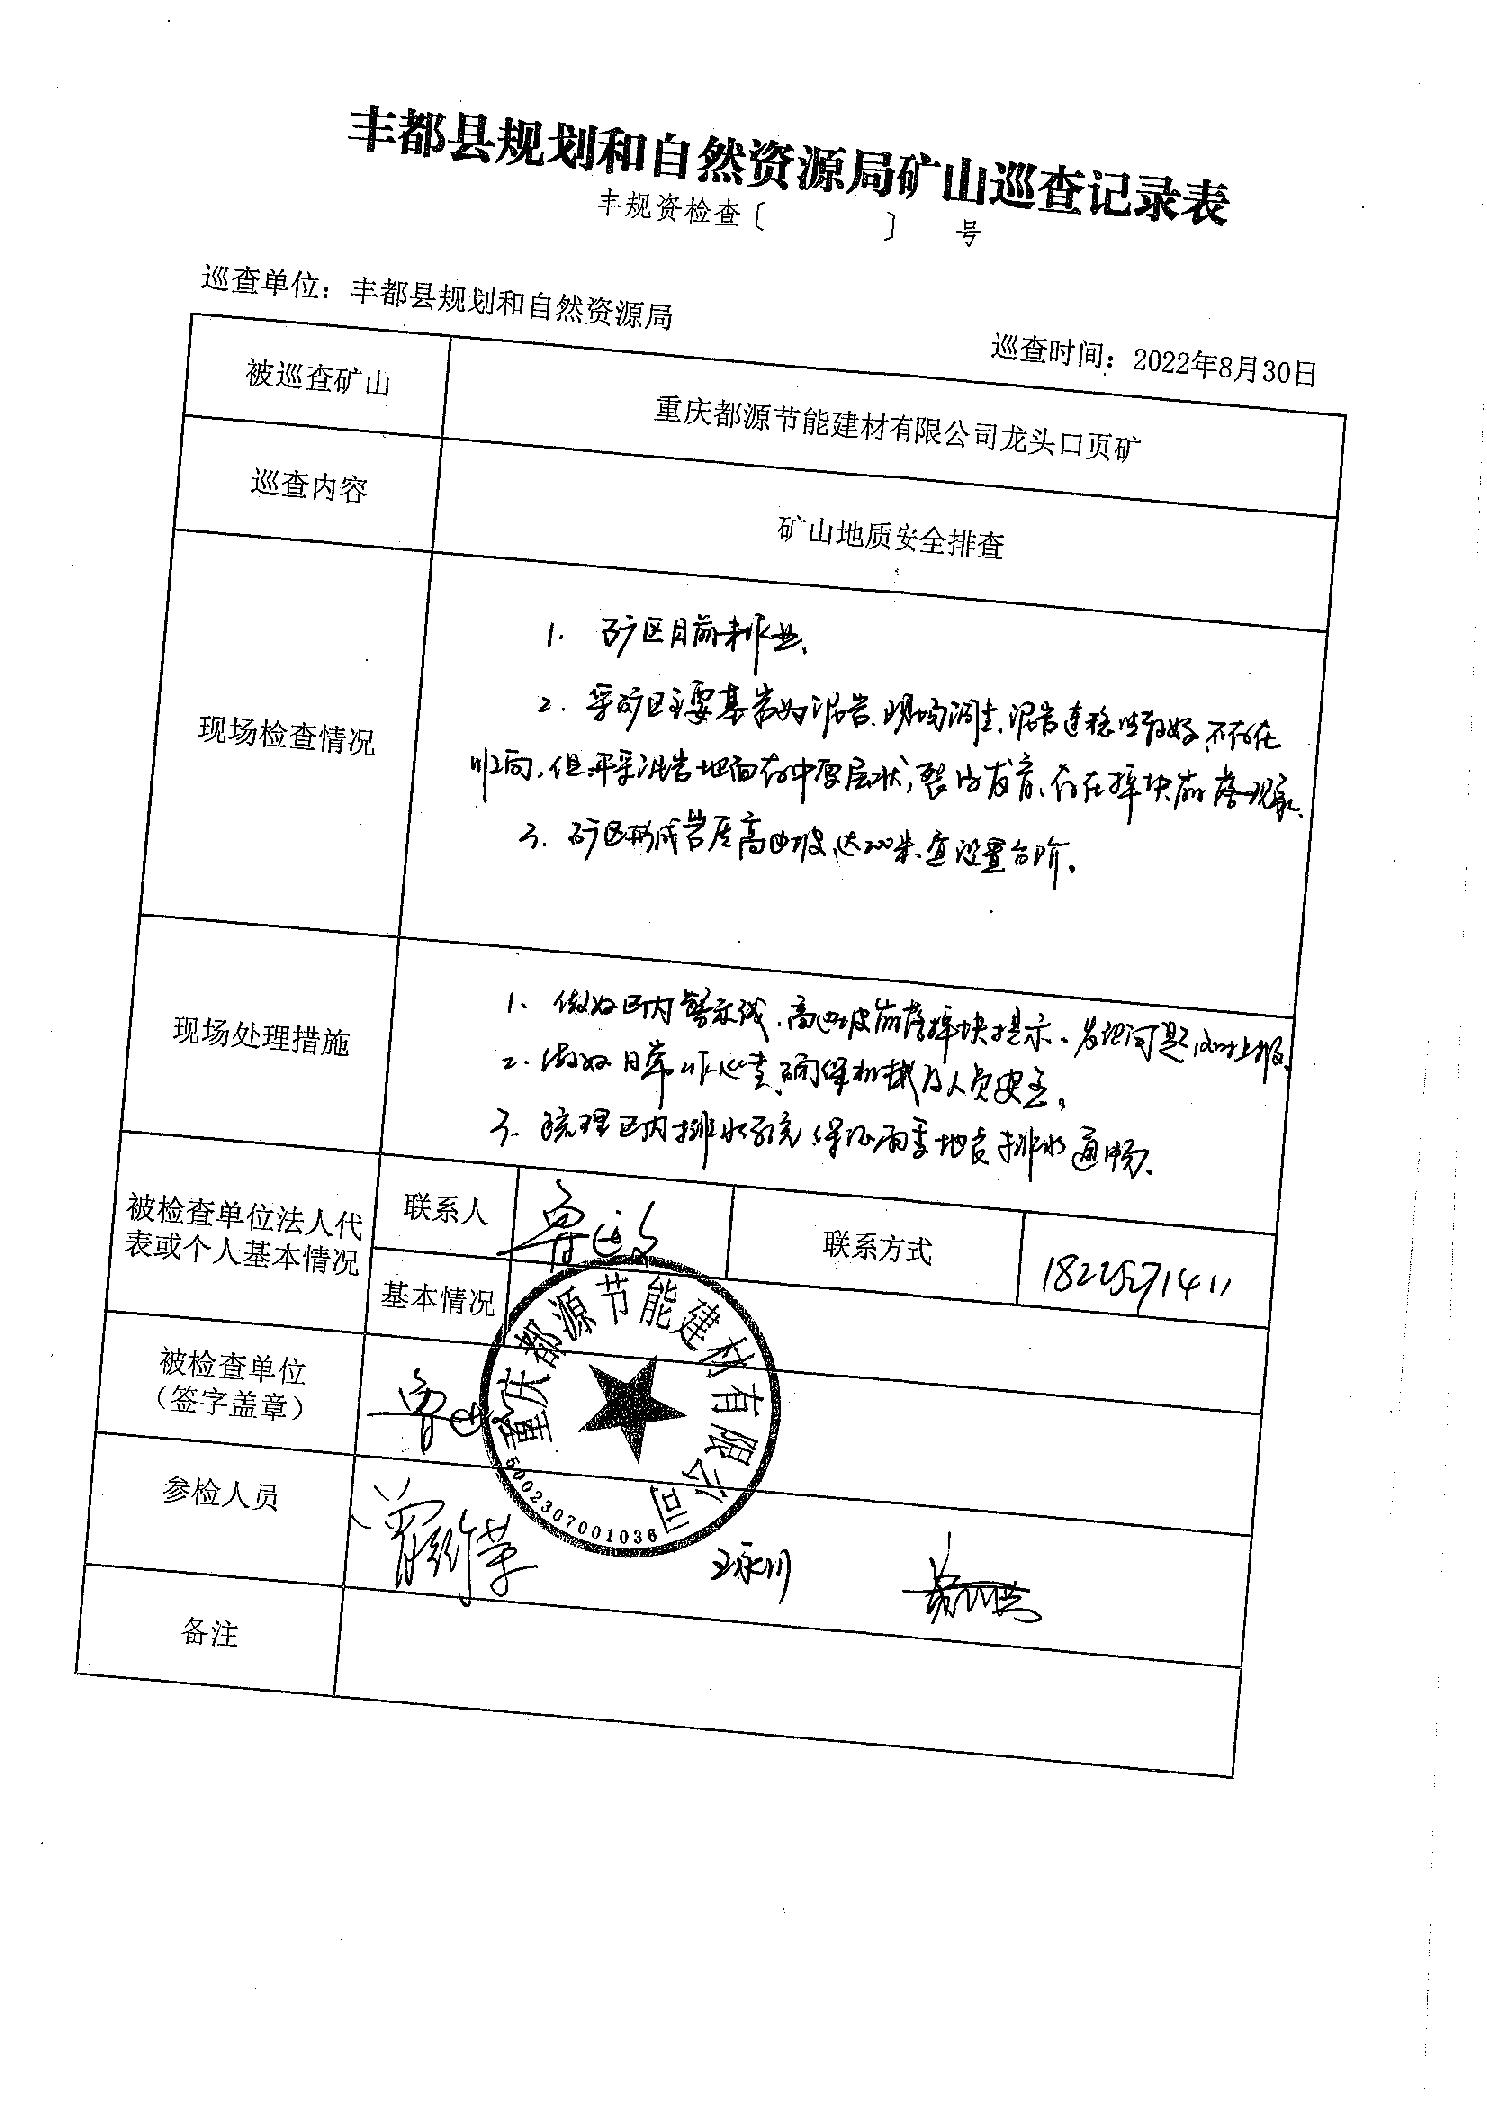 丰都县规划和自然资源局矿山巡查记录表
丰规资检查〔 〕 号
巡查单位：丰都县规划和自然资源局
巡查时间：2022年8月30日
被巡查矿山
重庆都源节能建材有限公司龙头口页矿
巡查内容
矿山地质安全排查
现场检查情况
1. 矿区目前未作业、
2. 采矿区主要基岩为泥岩、现场调查，泥岩连稳性较好，不存在
顺向，但开采泥岩地面存中厚层状，裂隙发育、存在掉块崩落现象、
3. 矿区形成岩质高边坡，达200米，宜设置台阶。
现场处理措施
1. 做好区内警示线、高边坡崩落掉块提示。发现问题及时上报。
2. 做好日常巡查，确保机械及人员安全。
3. 梳理区内排水系统，保证雨季地表排水通畅、
被检查单位法人代
表或个人基本情况
联系人
联系方式
基本情况
被检查单位
（签字盖章）
重庆都源节能建材有限公司
5002307001036
参检人员
王永川
备注